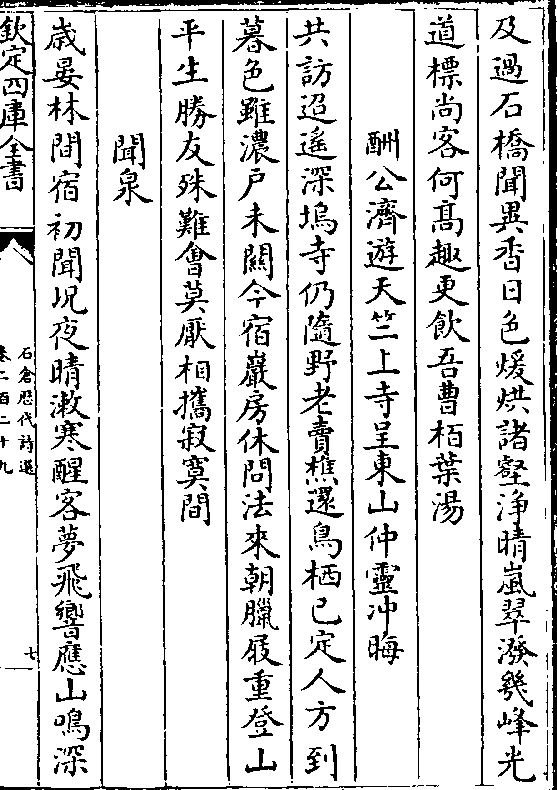 及過石橋聞異香日色煖烘諸壑浄晴嵐翠潑幾峰光
道標尚客何髙趣更飲吾曹栢葉湯
酬公濟遊天竺上寺呈東山仲靈沖晦
共訪迢遥深塢寺仍隨野老賣樵還鳥栖已定人方到
暮色雖濃户未關今宿巖房休問法來朝臘屐重登山
平生勝友殊難㑹莫厭相攜寂寞間
聞泉
歳晏林間宿初聞况夜晴漱寒醒客夢飛響應山鳴深
欽定四庫全書
石倉歴代詩選
卷二百二十九
七